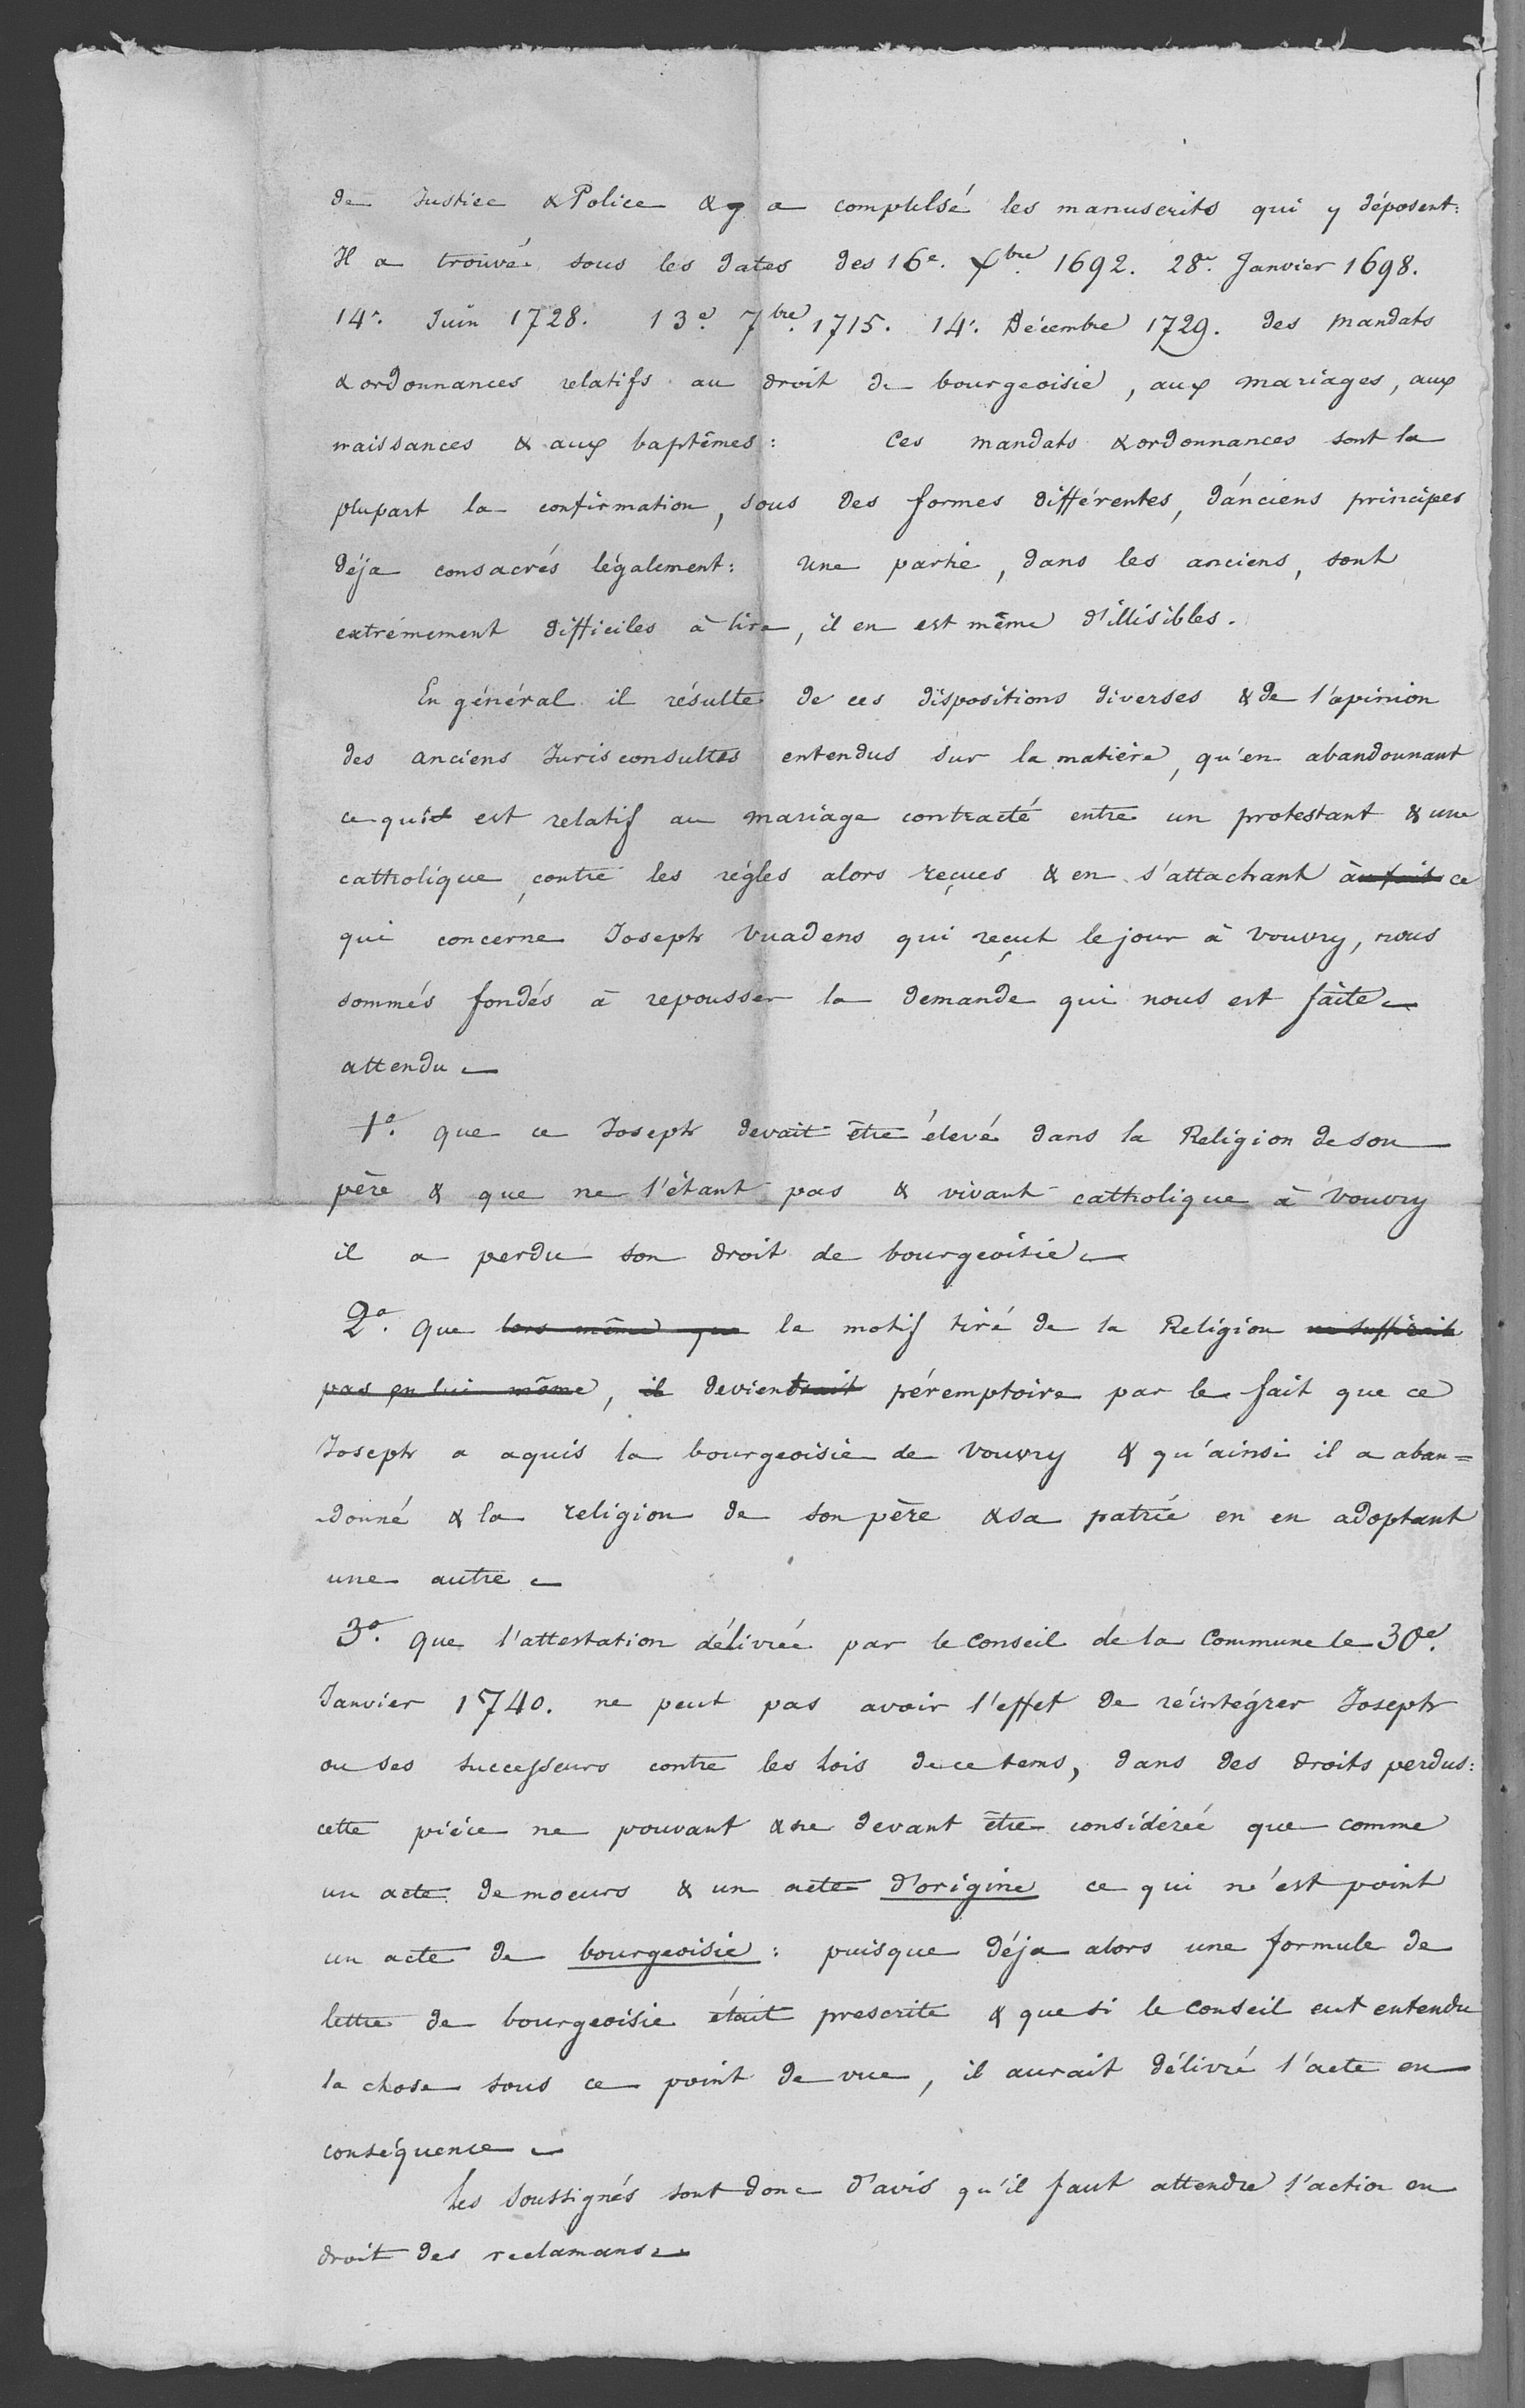 de Justice & Police & y a compulsé les manuscrits qui y déposent:
Il a trouvé sous les dates des 16e. Xbre. 1692. 28e. Janvier 1698.
14e. Juin 1728. 13e. 7bre. 1715. 14e. Décembre 1729. des mandats
& ordonnances relatifs au droit de bourgeoisie, aux mariages, aux
naissances & aux baptêmes: Ces mandats & ordonnances sont la
plupart la confirmation, sous des formes différentes, d'anciens principes
déja consacrés légalement: Une partie, dans les anciens, sont
extrémement difficiles à lire, il en est même d'illisibles.
En général il résulte de ces dispositions diverses & de l'opinion
des anciens Jurisconsultes entendus sur la matière, qu'en abandonnant
ce qui est relatif au mariage contracté entre un protestant & une
catholique, contre les régles alors reçues & en s'attachant à au fait ce
qui concerne Joseph Vuadens qui reçut le jour à Vouvry, nous
sommés fondés à repousser la demande qui nous est faite
attendu
1o. que ce Joseph devait être élevé dans la Religion de son
père & que ne l'étant pas & vivant catholique à Vouvry
il a perdu son droit de bourgeoisie
2o. Que lors même que le motif tiré de la Religion ne suffirait
pas en lui même, il deviendrait péremptoire par le fait que ce
Joseph a aquis la bourgeoisie de Vouvry & qu'ainsi il a aban=
donné & la religion de son père & sa patrie en en adoptant
une autre
3o. Que l'attestation délivrée par le Conseil de la Commune le 30e.
Janvier 1740. ne peut pas avoir l'effet de réintégrer Joseph
ou ses successeurs contre les lois de ce tems, dans des droits perdus:
cette piéce ne pouvant & ne devant être considérée que comme
un acte de moeurs & un acte d'origine ce qui n'est point
un acte de bourgeoisie: puisque déja alors une formule de
lettre de bourgeoisie était prescrite & que si le Conseil eut entendu
la chose sous ce point de vue, il aurait délivré l'acte en
conséquence
Les soussignés sont donc d'avis qu'il faut attendre l'action en
droit des reclamans